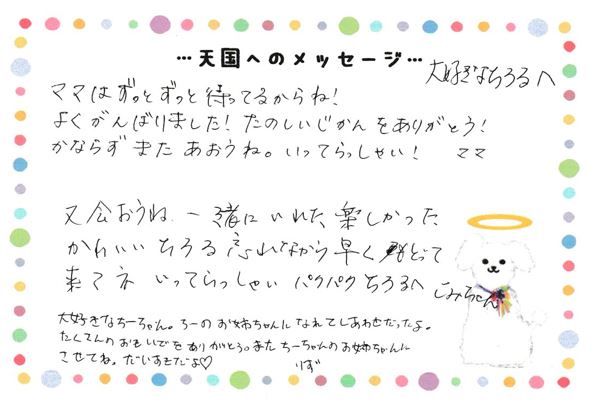 …天国へのメッセージ…
大好きなちろるへ
ママはずっとずっと待ってるからね!
よくがんばりました!たのしいじかんをありがとう!
かならずまたあおうね。いってらっしゃい! ママ
又会おうね 一緒にいれた楽しかった
かわいいちろる 忘れながら早くもどって
来てネ いってらっしゃい パクパクちろるへ ごみちゃん
大好きなちーちゃん。ちーのお姉ちゃんになれてしあわせだったよ。
たくさんのおもいでをありがとう。またちーちゃんのお姉ちゃんに
させてね。だいすきだよ♡ りず